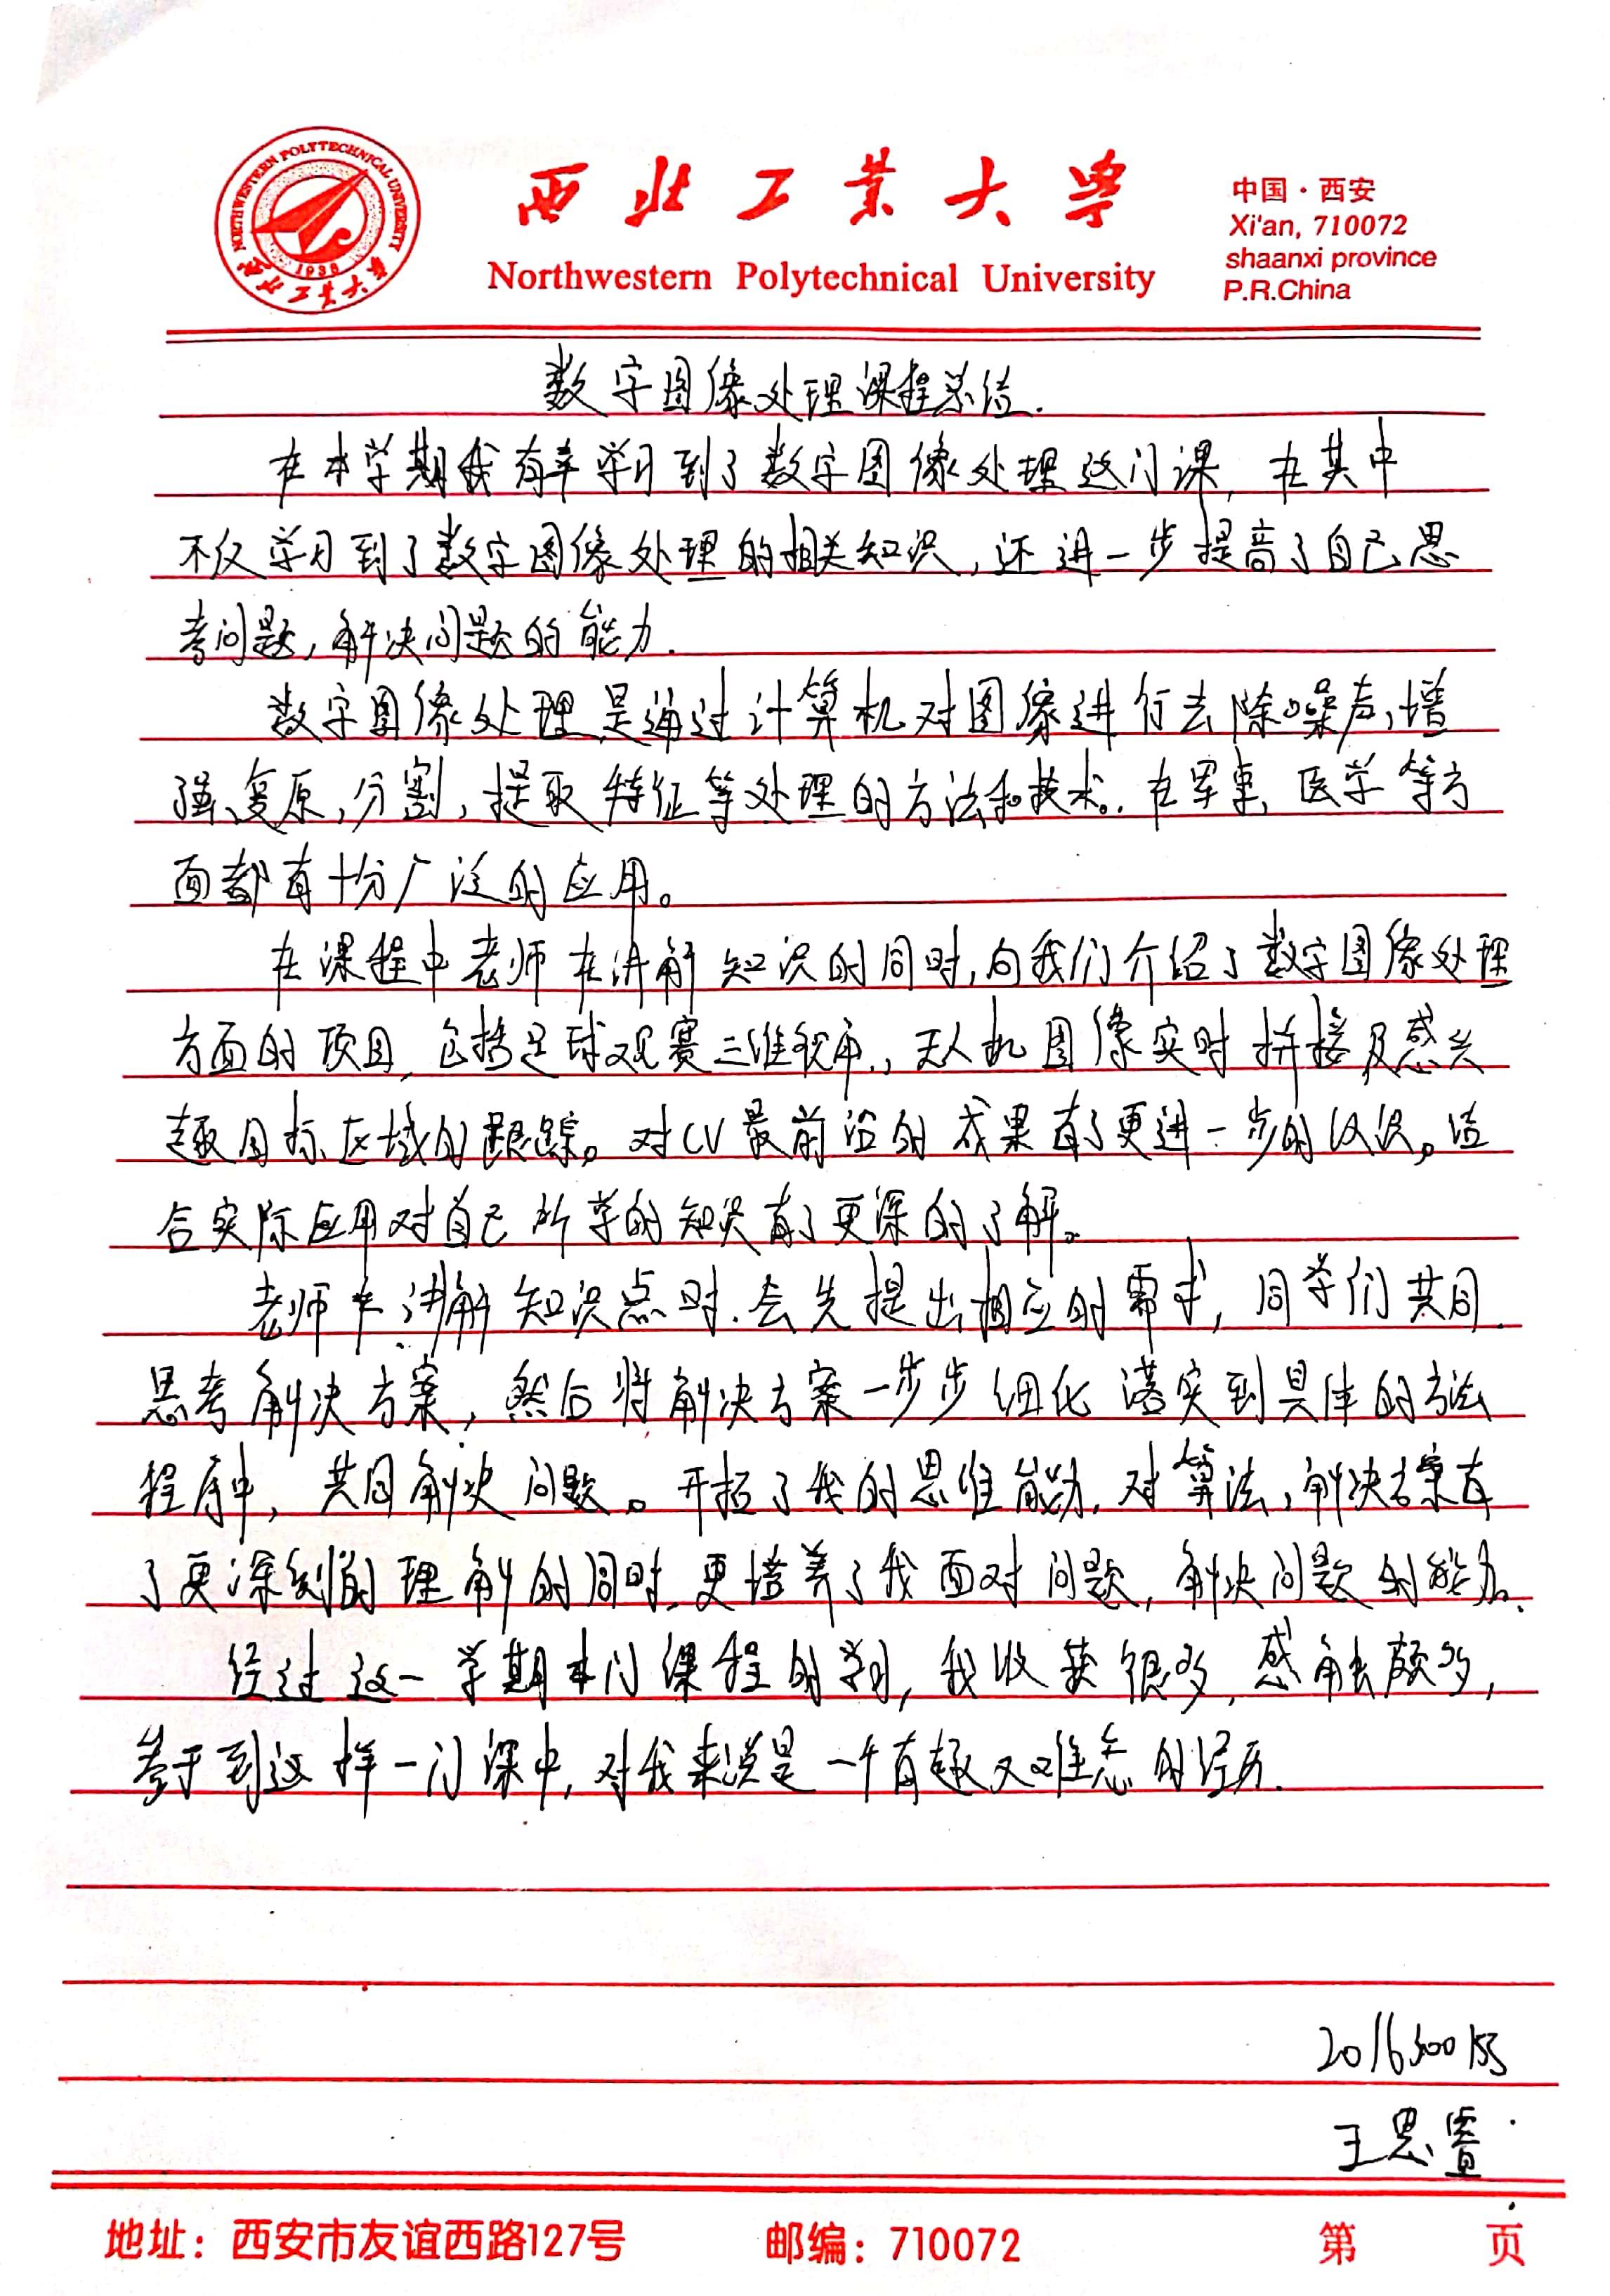 NORTHWESTERN POLYTECHNICAL UNIVERSITY
1938
西北工业大学
西北工业大学
Northwestern Polytechnical University
中国·西安
Xi'an, 710072
shaanxi province
P.R.China
数字图像处理课程总结.
在本学期我有幸学习到了数字图像处理这门课, 在其中
不仅学习到了数字图像处理的相关知识, 还进一步提高了自己思
考问题, 解决问题的能力.
数字图像处理是通过计算机对图像进行去除噪声、增
强、复原、分割、提取特征等处理的方法和技术。在军事、医学等方
面都有十分广泛的应用。
在课程中老师在讲解知识的同时,向我们介绍了数字图像处理
方面的项目, 包括足球观赛三维视角、无人机图像实时拼接及感兴
趣目标区域的跟踪。对CV最前沿的成果有了更进一步的认识。结
合实际应用对自己所学的知识有了更深的了解。
老师在讲解知识点时.会先提出相应的需求, 同学们共同
思考解决方案, 然后将解决方案一步步细化 落实到具体的方法
程序中, 共同解决问题。开拓了我的思维能力. 对算法、解决方案有
了更深刻的理解的同时.更培养了我面对问题, 解决问题的能力.
经过这一学期本门课程的学习, 我收获很多, 感触颇多,
参于到这样一门课中, 对我来说是一个有趣又难忘的经历.
2016300155
王思睿
地址：西安市友谊西路127号 邮编：710072 第 页